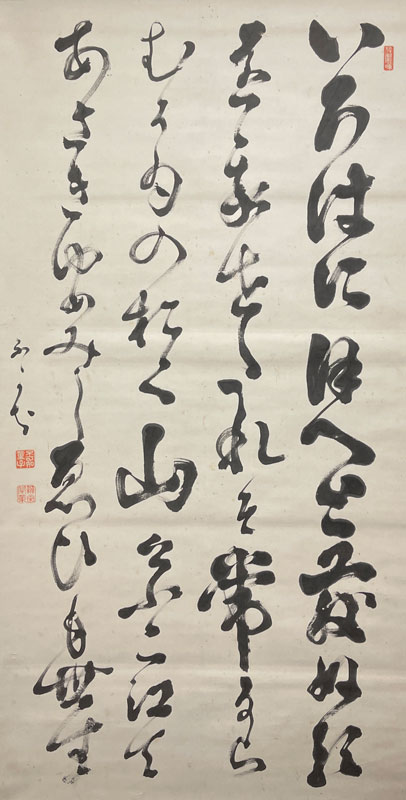 いろはにほへと散ぬる
わかよたれそ常なら
むうゐのおく山けふこえて
あさきゆめみしゑひもせす